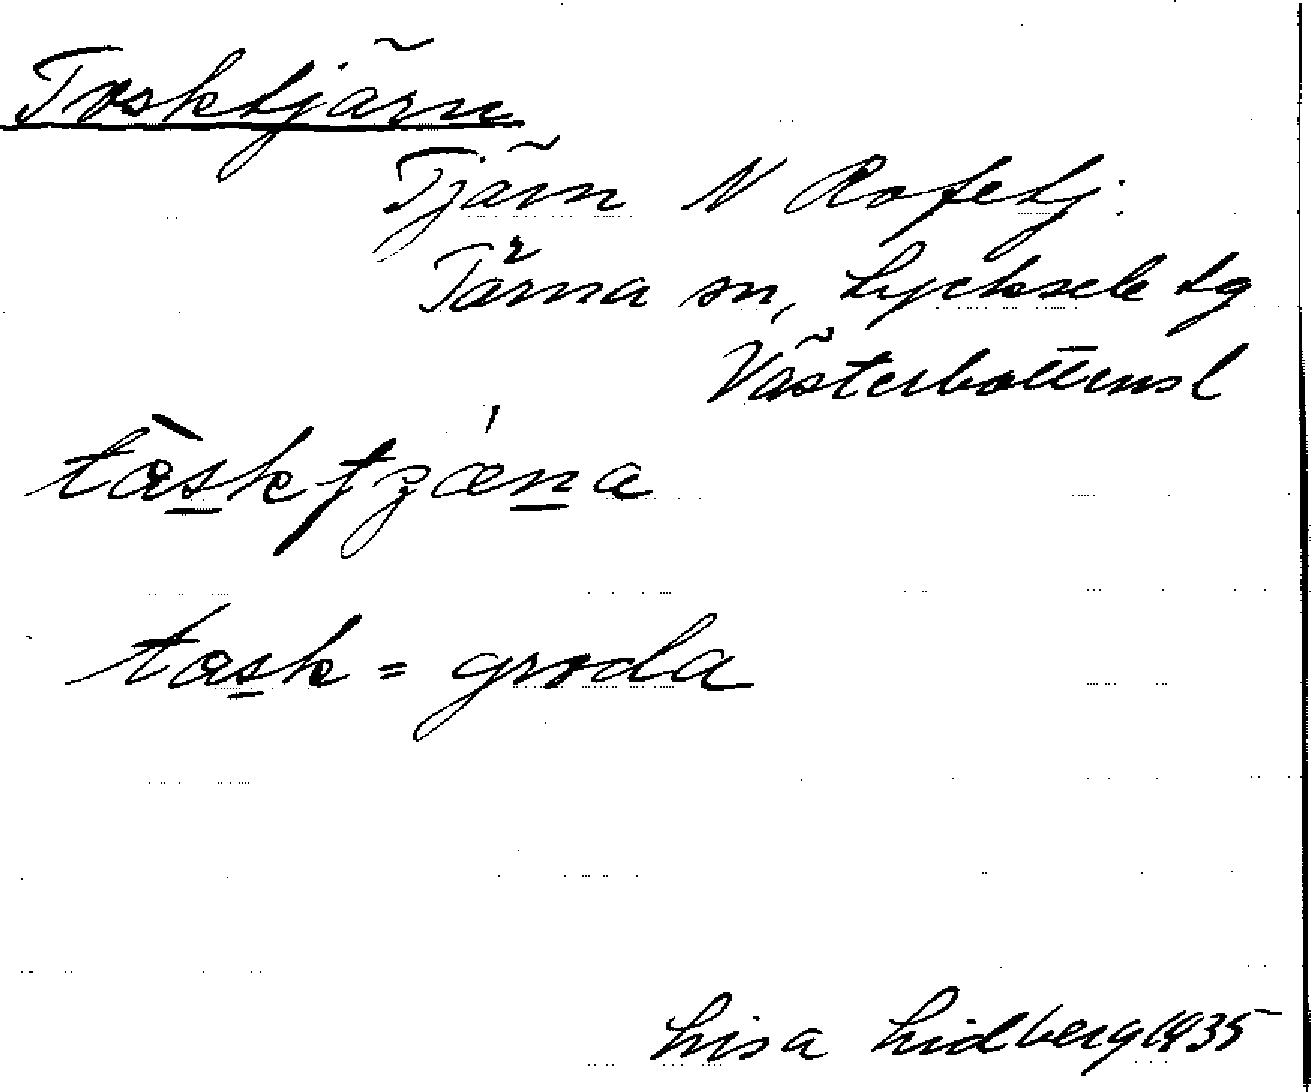 Tosktjärn
Tjärn N Rofetj.
Tärna sn, Lycksele lg
Västerbottensl
tòsktʃzǽna
task = groda
Lisa Lidberg 1935